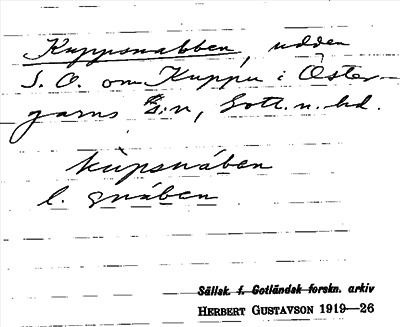 Kuppsnabben, udden
S. O. om Kuppu i Öster-
garns S:n, Gotl. n. hd.
kùpsnáben
l. snáben
Sällsk. f. Gotländsk forskn. arkiv
HERBERT GUSTAVSON 1919—26